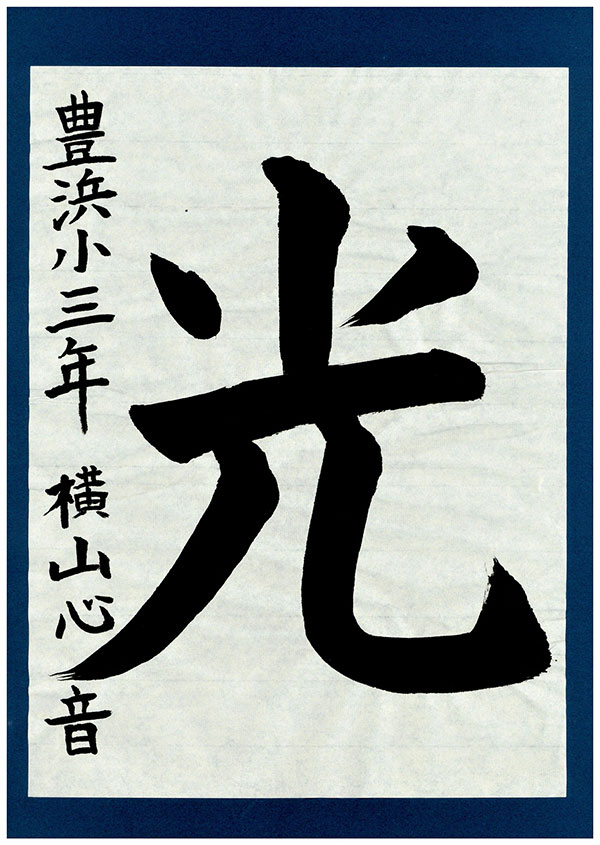 光
豊浜小三年 横山心音